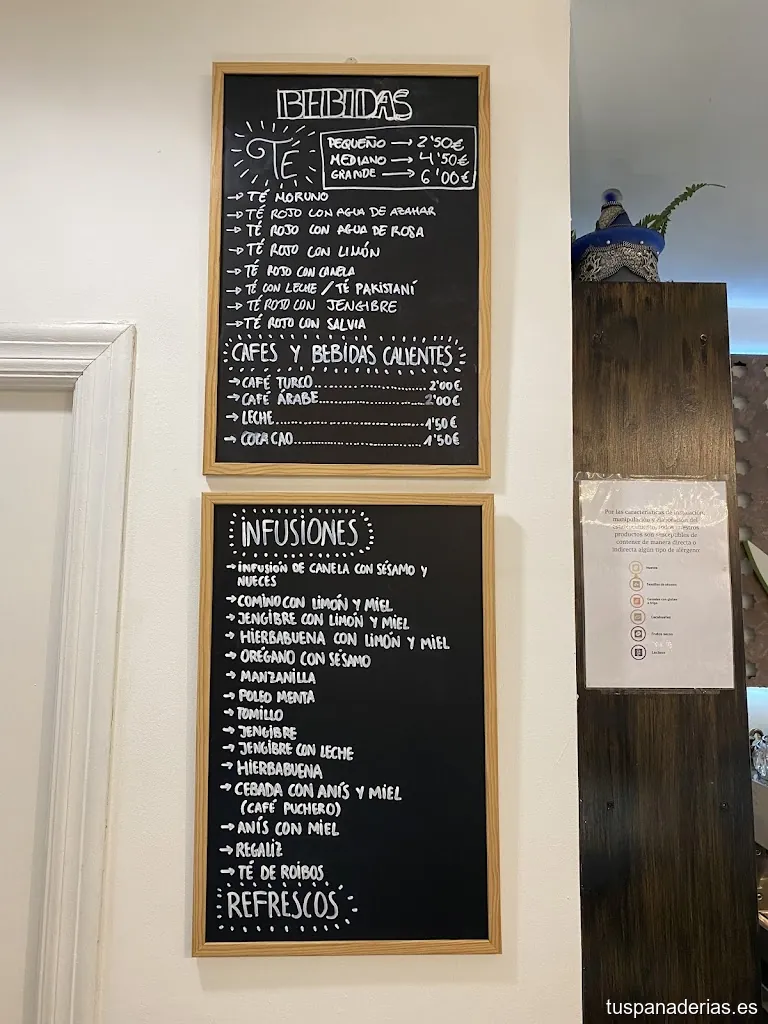 BEBIDAS
TÉ
PEQUEÑO → 2'50€
MEDIANO → 4'50€
GRANDE → 6'00€
→ TÉ MORUNO
→ TÉ ROJO CON AGUA DE AZAHAR
→ TÉ ROJO CON AGUA DE ROSA
→ TÉ ROJO CON LIMÓN
→ TÉ ROJO CON CANELA
→ TÉ CON LECHE / TÉ PAKISTANÍ
→ TÉ ROJO CON JENGIBRE
→ TÉ ROJO CON SALVIA
CAFES Y BEBIDAS CALIENTES
→ CAFÉ TURCO..................2'00€
→ CAFÉ ÁRABE..................2'00€
→ LECHE..................1'50€
→ COLA CAO..................1'50€
INFUSIONES
→ INFUSIÓN DE CANELA CON SÉSAMO Y
NUECES
→ COMINO CON LIMÓN Y MIEL
→ JENGIBRE CON LIMÓN Y MIEL
→ HIERBABUENA CON LIMÓN Y MIEL
→ ORÉGANO CON SÉSAMO
→ MANZANILLA
→ POLEO MENTA
→ TOMILLO
→ JENGIBRE
→ JENGIBRE CON LECHE
→ HIERBABUENA
→ CEBADA CON ANÍS Y MIEL
(CAFÉ PUCHERO)
→ ANÍS CON MIEL
→ REGALIZ
→ TÉ DE ROIBOS
REFRESCOS
Por las características de
manipulación y elaboración del
establecimiento, todos nuestros
productos son susceptibles de
contener de manera directa o
indirecta algún tipo de alérgeno:
tuspanaderias.es